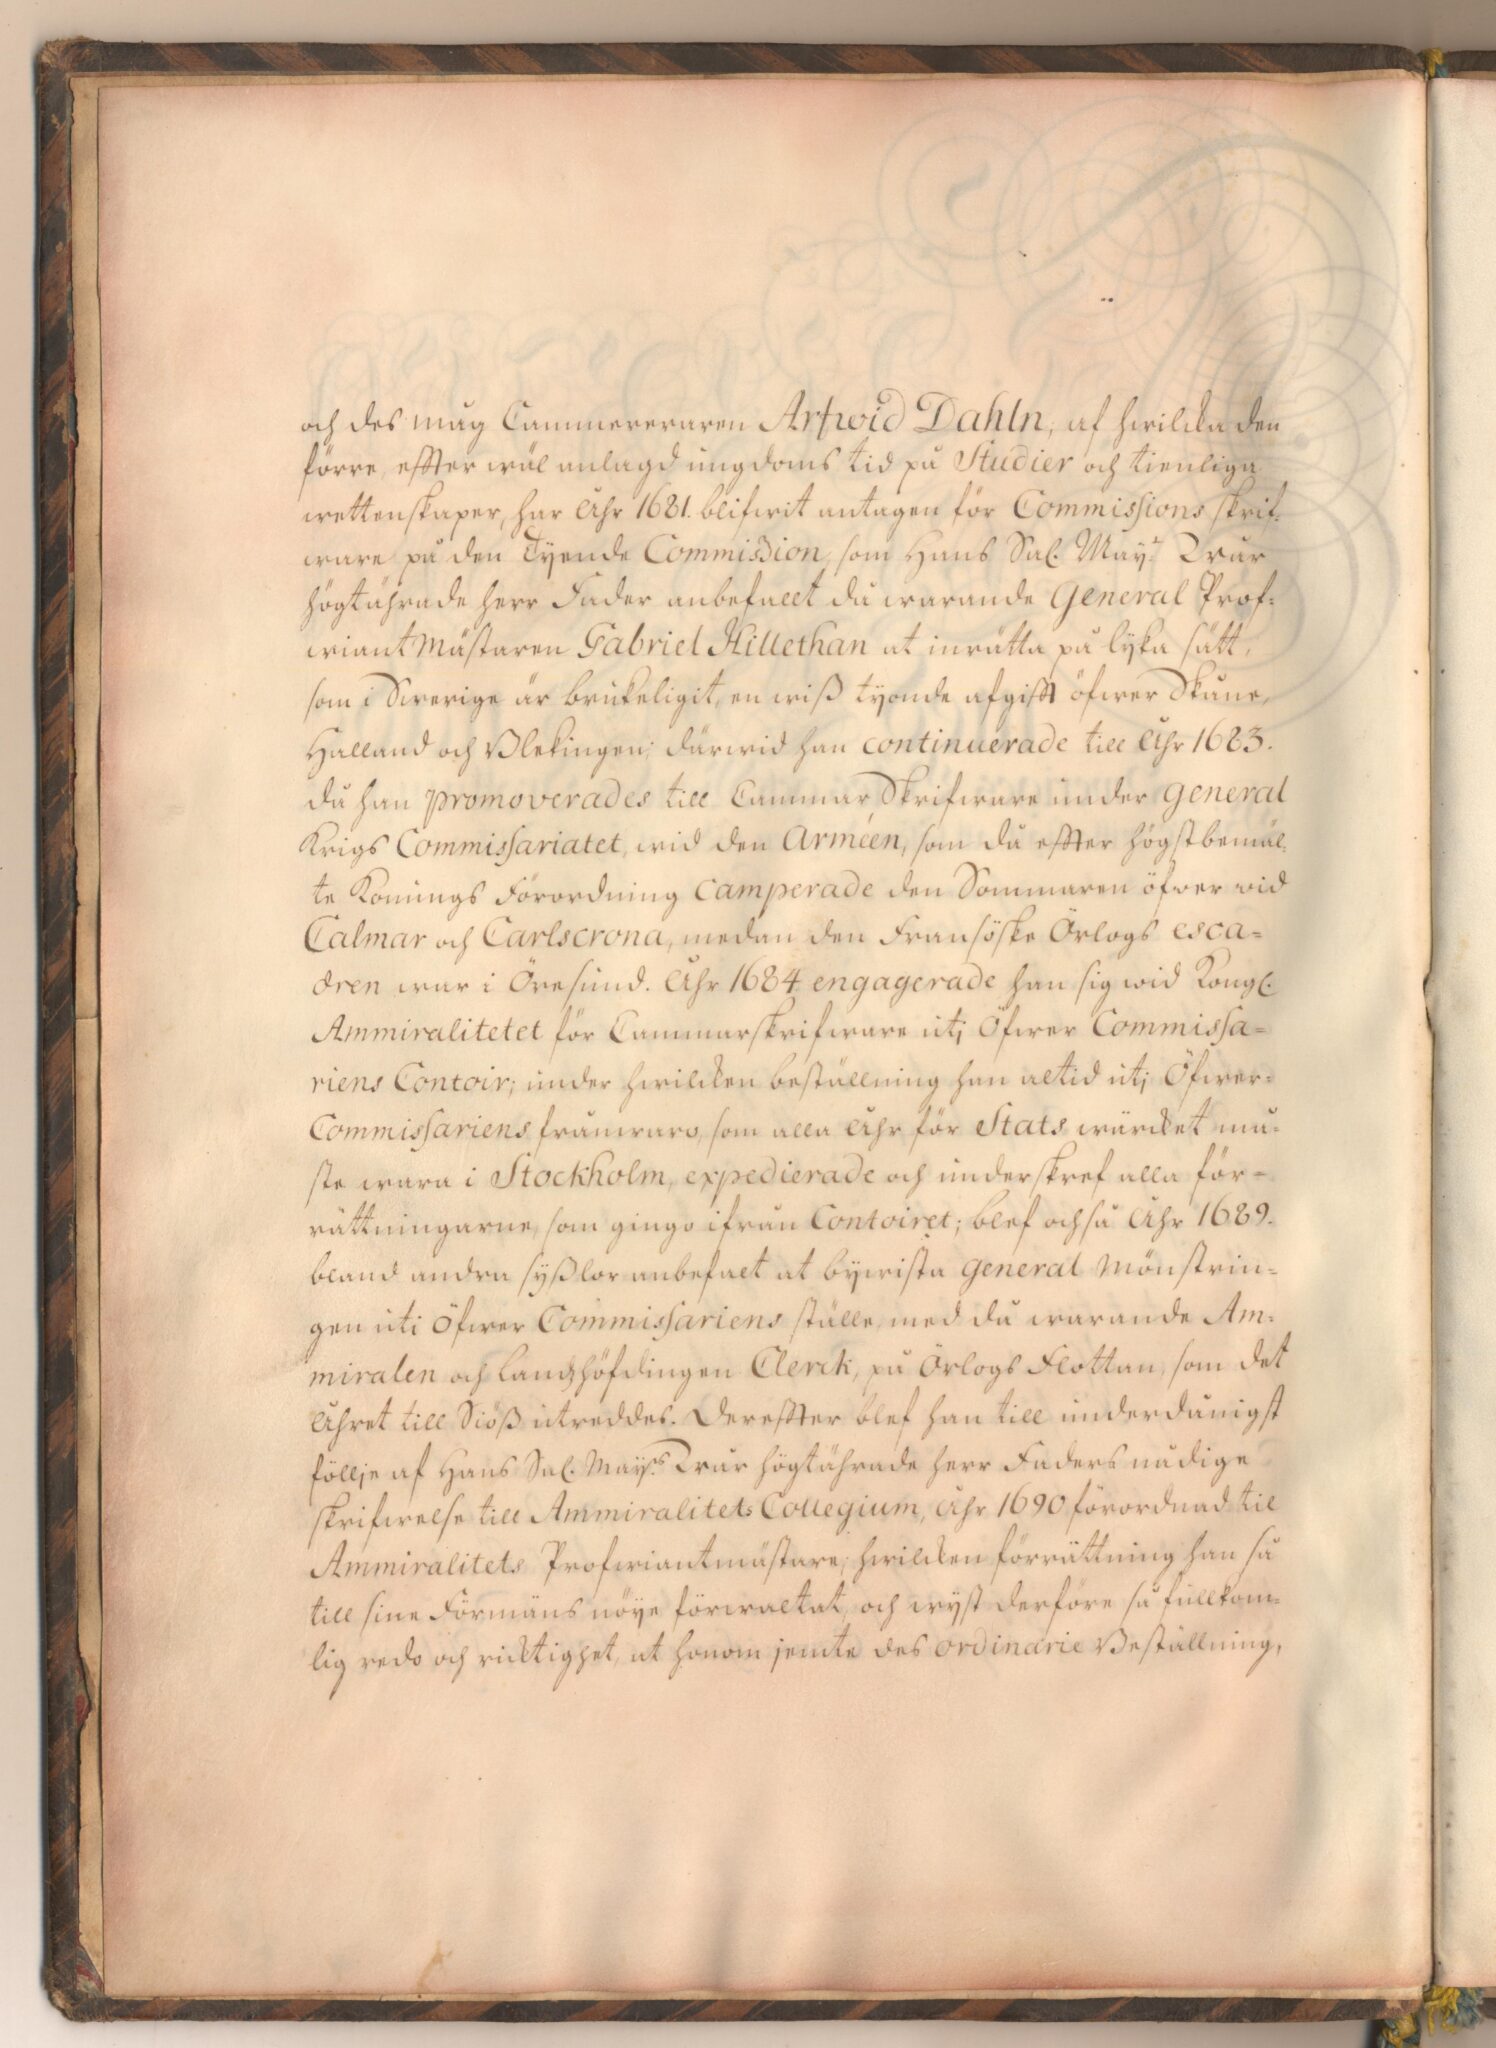 och des måg Cammereraren Arfwid Dahln, af hwilcka den
förre, effter wäl anlagd ungdoms tid på Studier och tienliga
wettenskaper, har Åhr 1681. blifwit antagen för Commissions skrif-
ware på den Tyende Commission, som Hans Sal. Mayt. Wår
högtährade herr Fader anbefallt då warande General Prof-
wiant Mästaren Gabriel Hillethan at inrätta på lyka sätt,
som i Swerige är brukeligit, en wiß tyonde afgifft öfwer Skåne,
Halland och Blekingen; därwid han continuerade till Åhr 1683.
då han promoverades till Cammar Skrifware under general
Krigs Commissariatet, wid den Arméen, som då effter högstbemäl-
te Konungs Förordning camperade den Sommaren öfwer wid
Calmar och Carlscrona, medan den Fransöske Örlogs esca-
dren war i Öresund. Åhr 1684 engagerade han sig wid Kongl.
Ammiralitetet för Cammarskrifware utj Öfwer Commissa-
riens Contoir; under hwilcken beställning han altid utj Öfwer-
Commissariens frånwaro, som alla Åhr för Stats wärcket må-
ste wara i Stockholm, expedierade och underskref alla för-
rättningarne, som gingo ifrån Contoiret; blef ochså Åhr 1689.
bland andra sysßlor anbefalt at bywista general Mönstrin-
gen uti Öfwer Commissariens ställe, med då warande Am-
miralen och landzhöfdingen Clerck, på Örlogs Flottan, som det
Åhret till Siöß utreddes. Dereffter blef han till underdånigst
föllje af Hans Sal. Mayts. Wår högtährade herr Faders nådige
skrifwelse till Ammiralitets Collegium, Åhr 1690 förordnad til
Ammiralitets Profwiantmästare; hwilcken förrättning han så
till sine Förmäns nöye förwaltat, och wyst derföre så fullkom-
lig redo och ricktighet, at honom jemte des ordinarie Beställning,